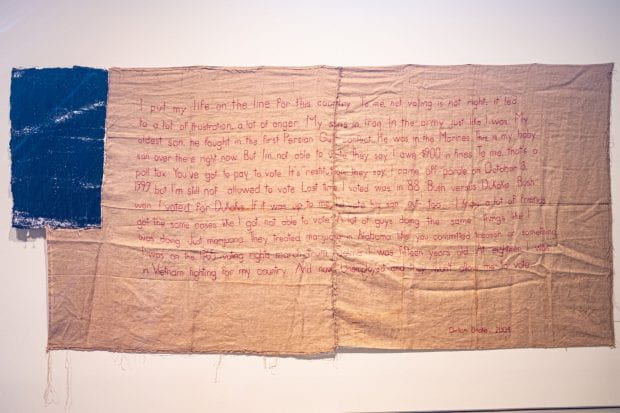 I put my life on the line for this country. To me, not voting is not right; it led
to a lot of frustration, a lot of anger. My son's in Iraq. In the army just like I was. My
oldest son, he fought in the first Persian Gulf conflict. He was in the Marines. This is my baby
son over there right now. But I'm not able to vote. They say I owe $900 in fines. To me, that's a
poll tax. You've got to pay to vote. It's they say. I came off parole on October
but I'm still not allowed to vote. Last time I voted was in '88. Bush versus Dukakis. Bush
won. I voted for Dukakis. If it was up to me, I'd vote his son out too. I know a lot of friends
got the same cases like I got, not able to vote. A lot of guys doing the same things like I
was doing. Just marijuana. They treat marijuana in Alabama like you committed treason or something.
I was on the 1965 voting rights march from I was fifteen years old. At eighteen, I was
in Vietnam fighting for my country. And now? Unemployed and they won't allow me to vote.